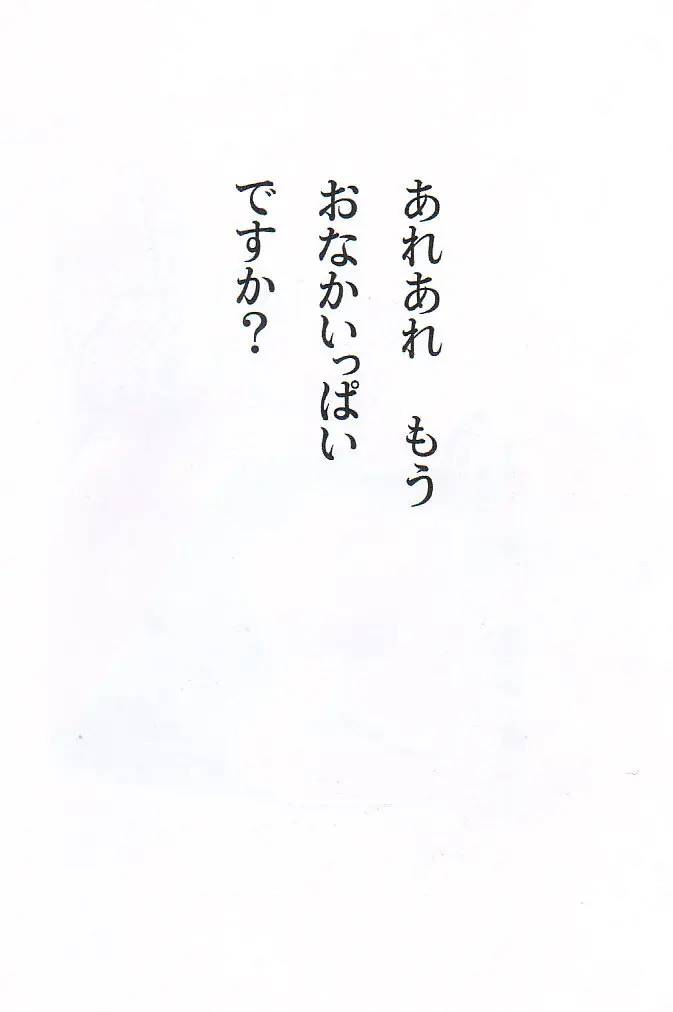 あれあれ　もう
おなかいっぱい
ですか？